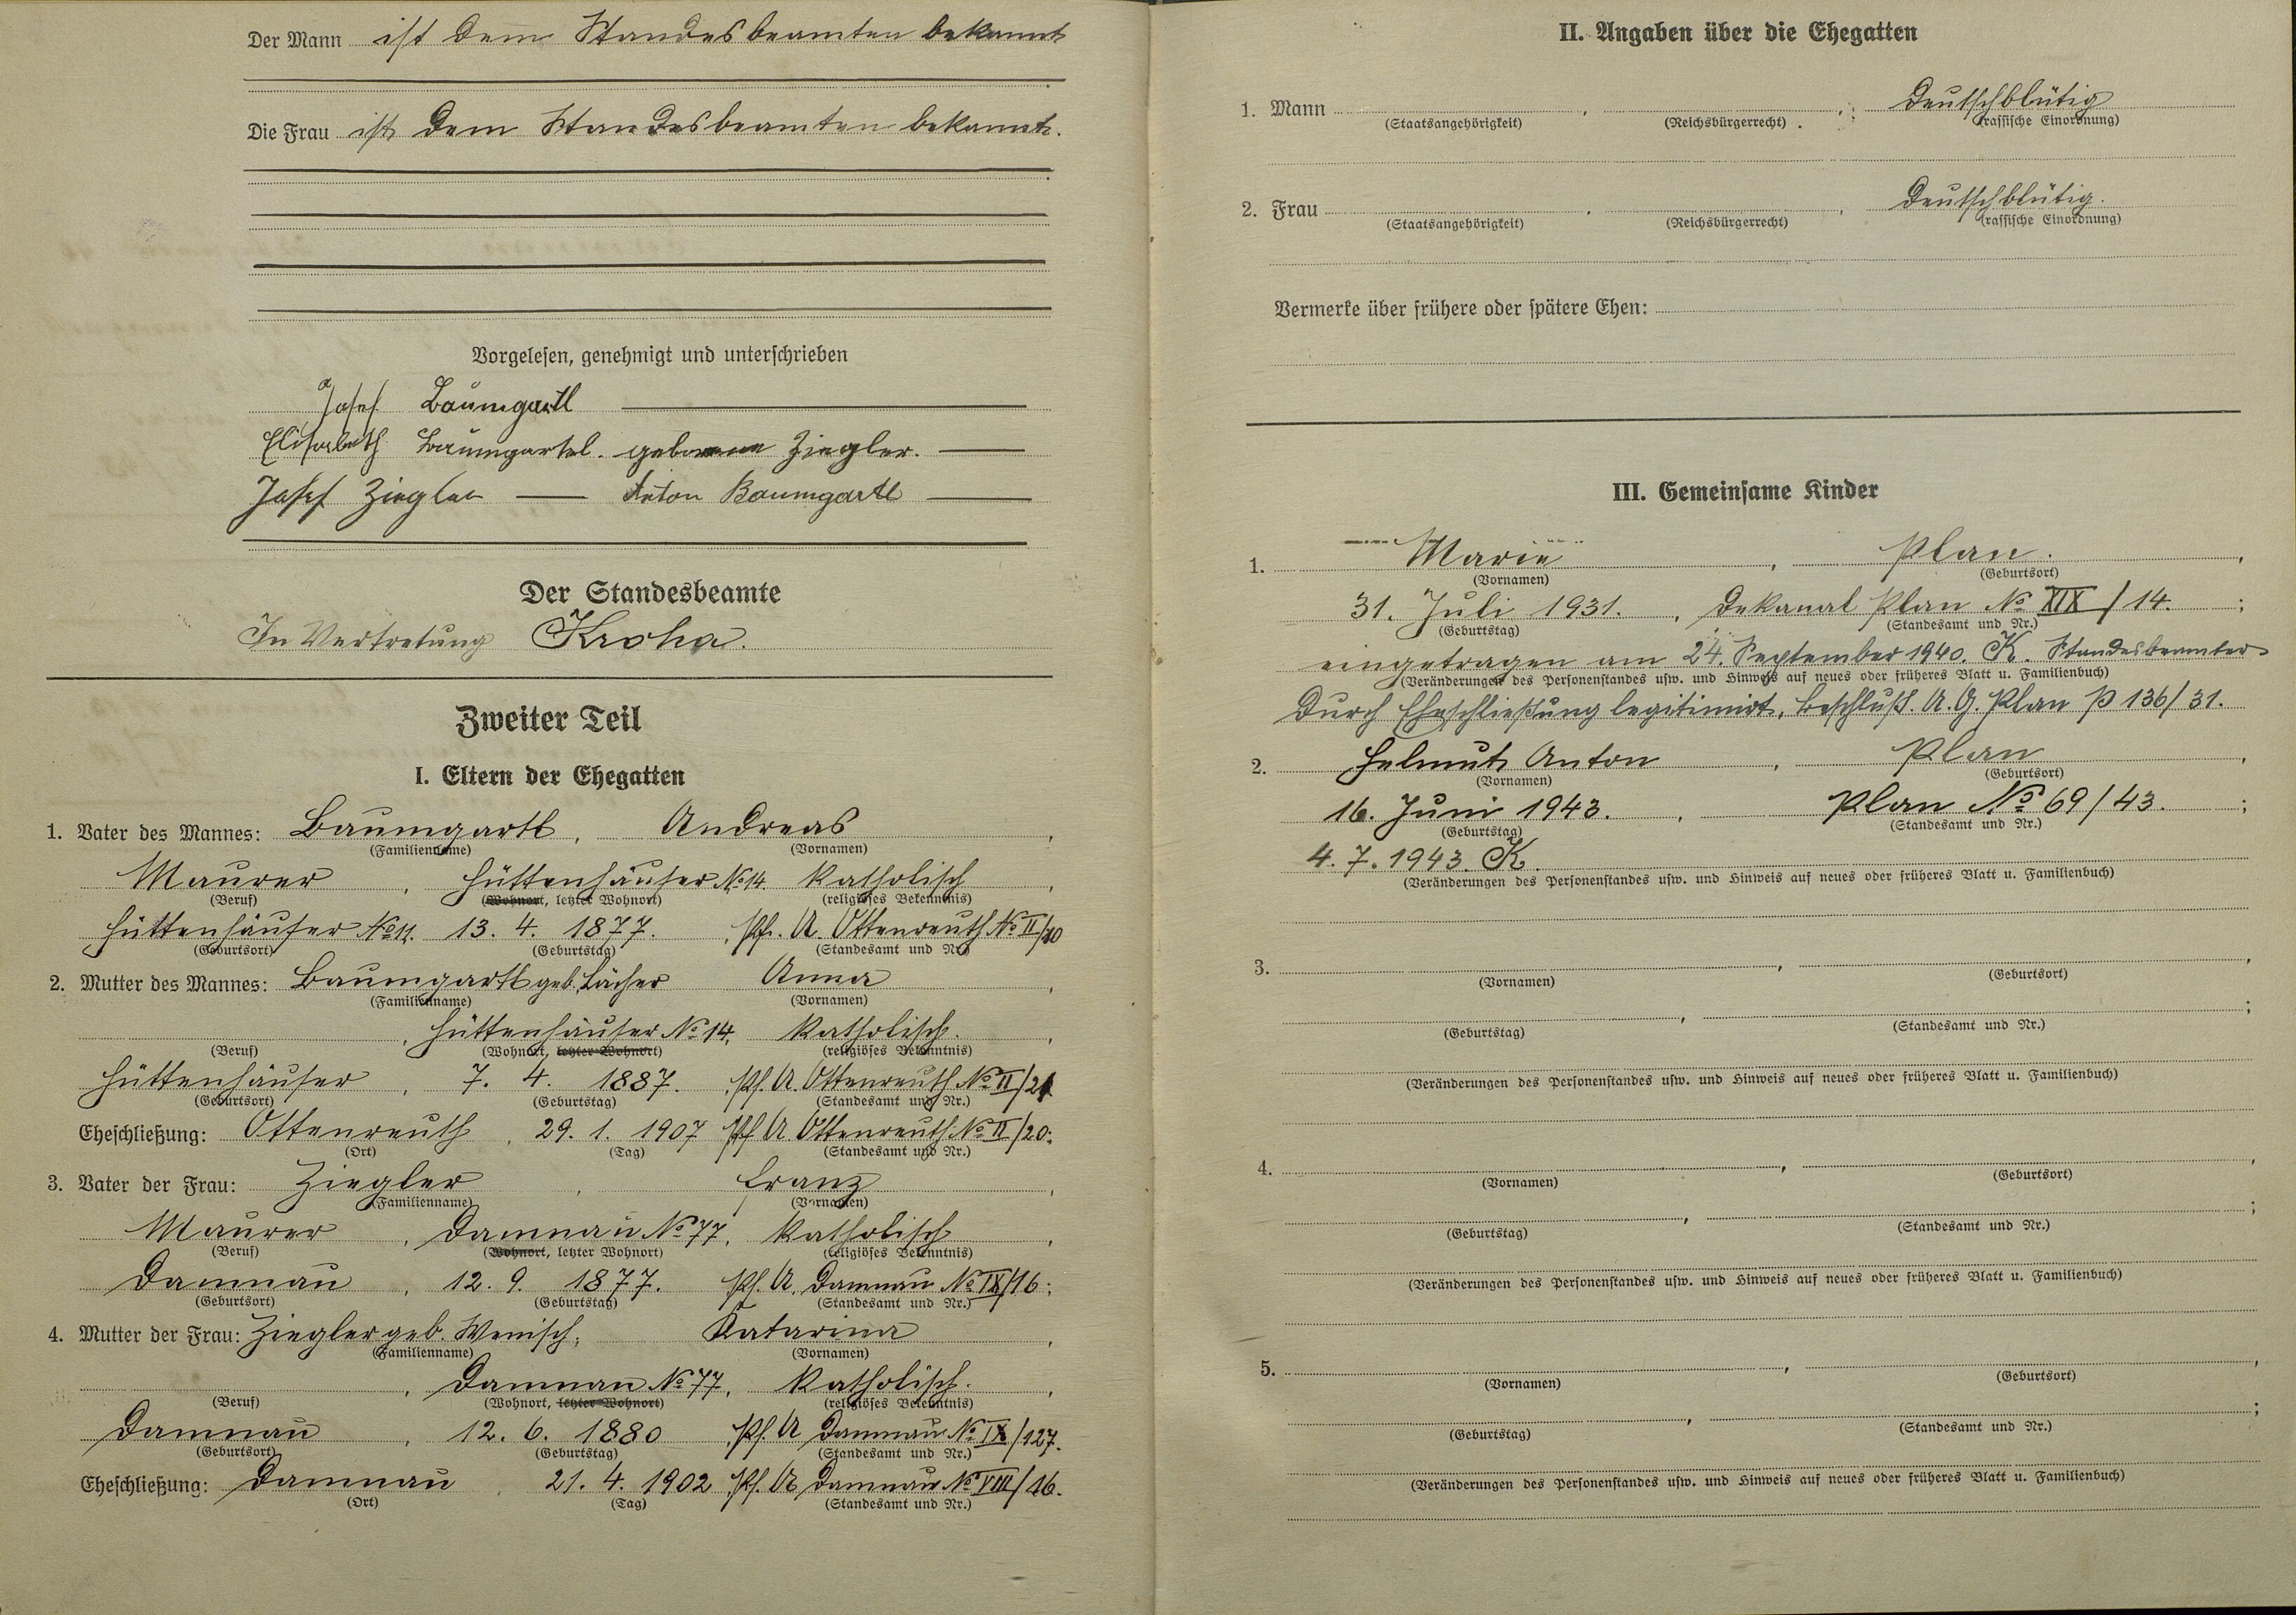 Der Mann ist dem Standesbeamten bekannt
Die Frau ist dem Standesbeamten bekannt.
Vorgelesen, genehmigt und unterschrieben
Josef Baumgartl
Elisabeth Baumgartel. geborene Ziegler.
Josef Ziegler Anton Baumgartl
Der Standesbeamte
In Vertretung Kroha.
Zweiter Teil
I. Eltern der Ehegatten
1. Vater des Mannes: Baumgartl, Andreas,
(Familienname) (Vornamen)
Maurer, Hüttenhäuser No 14. katholisch,
(Beruf) (Wohnort, letzter Wohnort) (religiöses Bekenntnis)
Hüttenhäuser No 11. 13. 4. 1877. Pf. A. Ottenreuth No II/10
(Geburtsort) (Geburtstag) (Standesamt und Nr.)
2. Mutter des Mannes: Baumgartl geb. Lächer Anna,
(Familienname) (Vornamen)
, Hüttenhäuser No 14, katholisch.,
(Beruf) (Wohnort, letzter Wohnort) (religiöses Bekenntnis)
Hüttenhäuser, 7. 4. 1887. Pf. A. Ottenreuth No II/21
(Geburtsort) (Geburtstag) (Standesamt und Nr.)
Eheschließung: Ottenreuth, 29. 1. 1907 Pf. A. Ottenreuth No II/20.
(Ort) (Tag) (Standesamt und Nr.)
3. Vater der Frau: Ziegler, Franz,
(Familienname) (Vornamen)
Maurer, Damnau No 77, katholisch,
(Beruf) (Wohnort, letzter Wohnort) (religiöses Bekenntnis)
Damnau, 12. 9. 1877. Pf. A. Damnau No IX/16;
(Geburtsort) (Geburtstag) (Standesamt und Nr.)
4. Mutter der Frau: Ziegler geb. Wenisch, Katarina,
(Familienname) (Vornamen)
, Damnau No 77, katholisch.,
(Beruf) (Wohnort, letzter Wohnort) (religiöses Bekenntnis)
Damnau, 12. 6. 1880 Pf. A Damnau No IX/127.
(Geburtsort) (Geburtstag) (Standesamt und Nr.)
Eheschließung: Damnau, 21. 4. 1902 Pf. A Damnau No VIII/16.
(Ort) (Tag) (Standesamt und Nr.)
II. Angaben über die Ehegatten
1. Mann , , Deutschblütig
(Staatsangehörigkeit) (Reichsbürgerrecht) (rassische Einordnung)
2. Frau , , Deutschblütig.
(Staatsangehörigkeit) (Reichsbürgerrecht) (rassische Einordnung)
Vermerke über frühere oder spätere Ehen:
III. Gemeinsame Kinder
1. Marie, Plan.,
(Vornamen) (Geburtsort)
31. Juli 1931., Dekanal Plan No XIX/14.;
(Geburtstag) (Standesamt und Nr.)
eingetragen am 24. September 1940. K. Standesbeamter
(Veränderungen des Personenstandes usw. und Hinweis auf neues oder früheres Blatt u. Familienbuch)
Durch Eheschließung legitimirt, Beschluß. A. G. Plan P 136/31.
2. Helmut Anton, Plan,
(Vornamen) (Geburtsort)
16. Juni 1943., Plan No 69/43.;
(Geburtstag) (Standesamt und Nr.)
4. 7. 1943. K.
(Veränderungen des Personenstandes usw. und Hinweis auf neues oder früheres Blatt u. Familienbuch)
3. , ,
(Vornamen) (Geburtsort)
, ;
(Geburtstag) (Standesamt und Nr.)
(Veränderungen des Personenstandes usw. und Hinweis auf neues oder früheres Blatt u. Familienbuch)
4. , ,
(Vornamen) (Geburtsort)
, ;
(Geburtstag) (Standesamt und Nr.)
(Veränderungen des Personenstandes usw. und Hinweis auf neues oder früheres Blatt u. Familienbuch)
5. , ,
(Vornamen) (Geburtsort)
, ;
(Geburtstag) (Standesamt und Nr.)
(Veränderungen des Personenstandes usw. und Hinweis auf neues oder früheres Blatt u. Familienbuch)